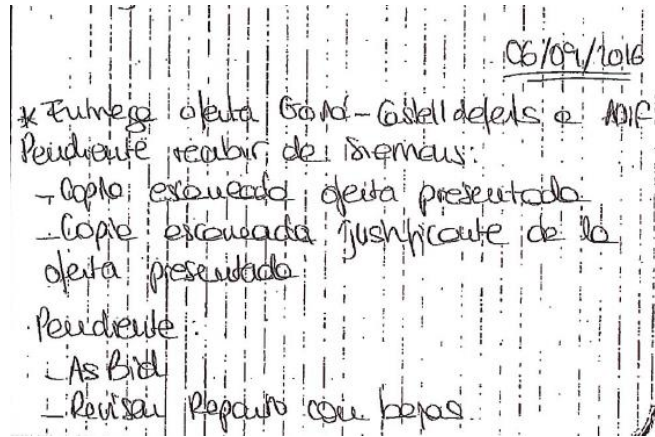 06/09/2016
* Entrega oferta Gavá-Castelldefels a ADIF
Pendiente recibir de Siemens:
- Copia escaneada oferta presentada
- Copia escaneada justificante de la
oferta presentada
Pendiente:
- As Bid
- Revisar Reparto con bajas